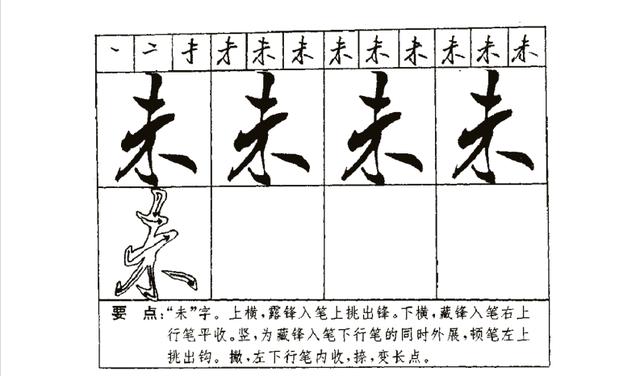 丶 二 扌 才 未 未 未 未 未 未 未 未
未 未 未 未
未
要 点:“未”字。上横,露锋入笔上挑出锋。下横,藏锋入笔右上
行笔平收。竖,为藏锋入笔下行笔的同时外展,顿笔左上
挑出钩。撇,左下行笔内收,捺,变长点。